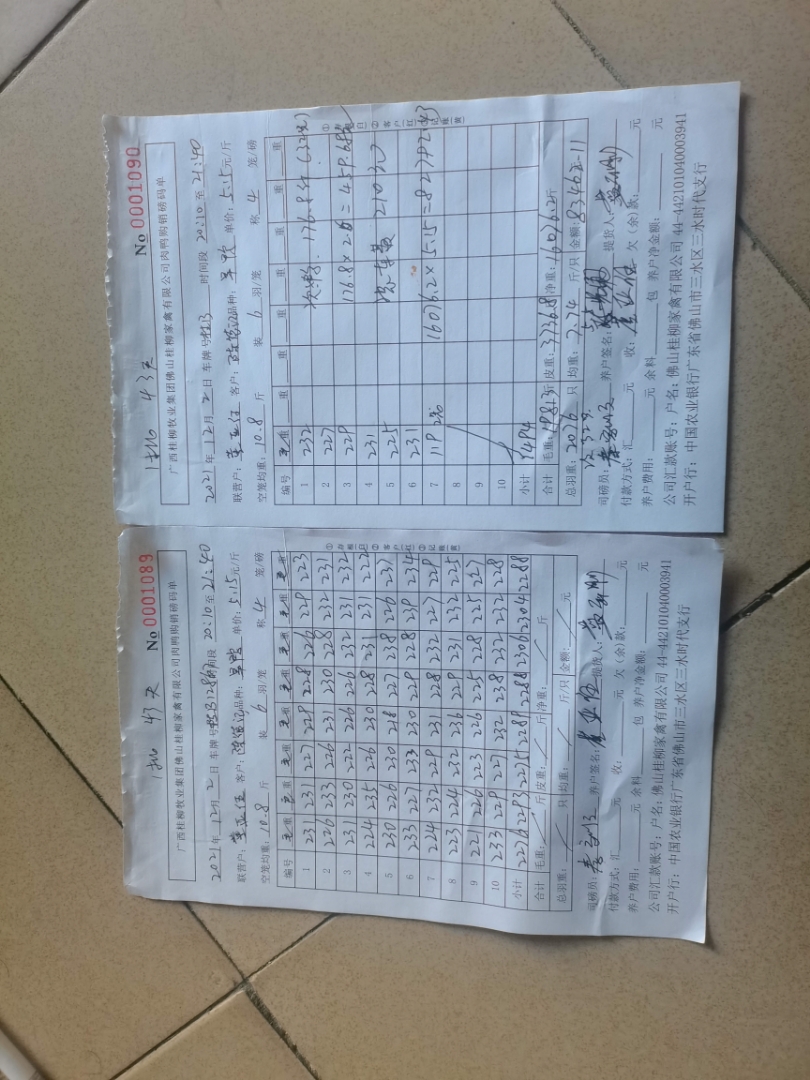 1批 43天
No 0001089
广西桂柳牧业集团佛山桂柳家禽有限公司肉鸭购销磅码单
2021年12月2日 车牌号 时间段 20:10至21:40
联营户: 客户: 品种: 单价:5.15元/斤
空笼均重:10.8斤 装6羽/笼 称4笼/磅
编号 毛重 毛重 毛重 毛重 毛重 毛重 毛重 毛重
1 231 231 227 229 228 226 229 223
2 226 233 226 231 230 228 232 231
3 231 230 222 226 226 232 231 232
4 224 235 226 230 228 231 231 222
5 230 226 230 228 227 238 226 237
6 233 227 233 230 229 228 230 234
7 224 232 229 231 228 232 227 229
8 223 224 232 236 229 231 232 225
9 221 226 223 226 225 228 225 227
10 233 229 227 232 238 232 232 228
小计 2276 2293 2275 2289 2288 2306 2304 2288
合计 毛重: 斤 皮重: 斤 净重: 斤
总羽重: 只 均重: 斤/只 金额: 元
司磅员: 养户签名: 提货人:
付款方式:汇 元 收: 元 欠(余)款: 元
养户费用: 元 余料 包 养户净金额: 元
公司汇款账号:户名:佛山桂柳家禽有限公司 44-442101040003941
开户行:中国农业银行广东省佛山市三水区三水时代支行
1批 43天
No 0001090
广西桂柳牧业集团佛山桂柳家禽有限公司肉鸭购销磅码单
2021年12月2日 车牌号 时间段 20:10至21:40
联营户: 客户: 品种: 单价:5.15元/斤
空笼均重:10.8斤 装6羽/笼 称4笼/磅
编号 毛重 重 重 重 重 重 重 重
1 232 次鸭:176.8斤(32只)
2 227
3 229 176.8×2.6=459.68
4 231
5 225 210元
6 231
7 119 16076.2×5.15=82792.43
8
9
10
小计 1494
合计 毛重:19813斤 皮重:3736.8斤 净重:16076.2斤
总羽重:2076只 均重:7.74斤/只 金额:83462.11元
司磅员: 养户签名: 提货人:
付款方式:汇 元 收: 元 欠(余)款: 元
养户费用: 元 余料 包 养户净金额: 元
公司汇款账号:户名:佛山桂柳家禽有限公司 44-442101040003941
开户行:中国农业银行广东省佛山市三水区三水时代支行